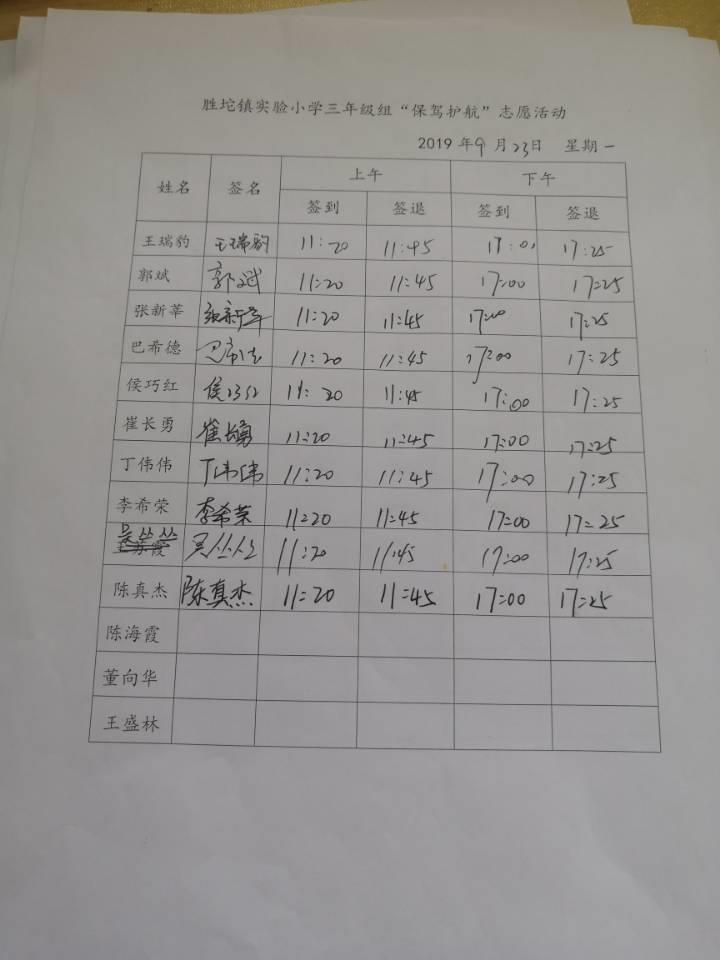 胜坨镇实验小学三年级组“保驾护航”志愿活动
2019年9月23日 星期一
姓名 签名 上午 下午
签到 签退 签到 签退
王瑞豹 王瑞豹 11:20 11:45 17:00 17:25
郭斌 郭斌 11:20 11:45 17:00 17:25
张新莘 张新莘 11:20 11:45 17:00 17:25
巴希德 巴希德 11:20 11:45 17:00 17:25
侯巧红 侯巧红 11:20 11:45 17:00 17:25
崔长勇 崔长勇 11:20 11:45 17:00 17:25
丁伟伟 丁伟伟 11:20 11:45 17:00 17:25
李希荣 李希荣 11:20 11:45 17:00 17:25
吴丛丛 吴丛丛 11:20 11:45 17:00 17:25
陈真杰 陈真杰 11:20 11:45 17:00 17:25
陈海霞
董向华
王盛林